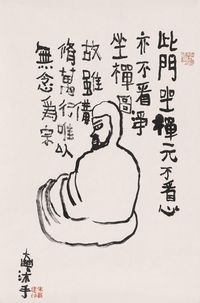 此門坐禪元不看心
亦不看淨
坐禪圖
故雖備
脩萬行唯以
無念為宗